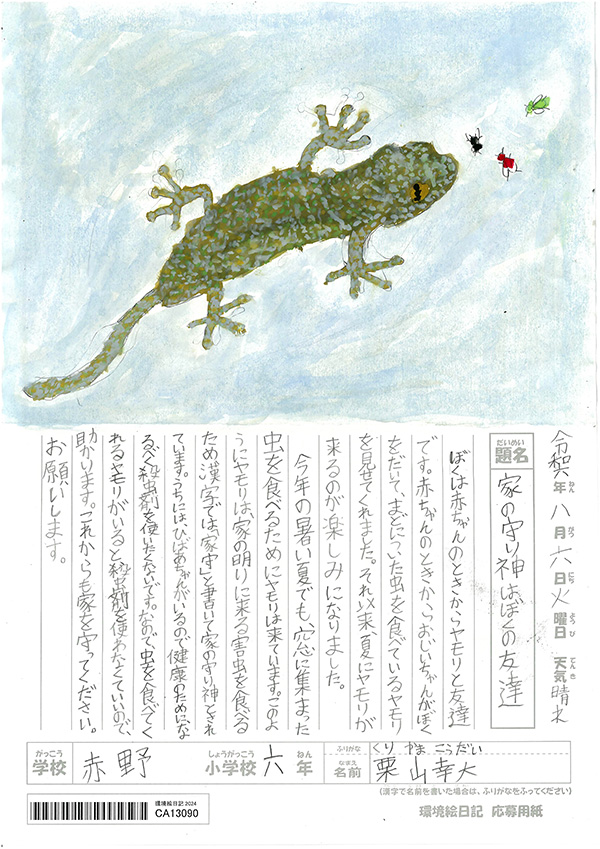 令和 年 ねん 八 月 がつ 六 日 にち 火 曜日 ようび 天気 てんき 晴れ
題名 だいめい 家の守り神はぼくの友達
ぼくは赤ちゃんのときからヤモリと友達
です。赤ちゃんのときからおじいちゃんがぼく
をだいて、まどについた虫を食べているヤモリ
を見せてくれました。それ以来、夏にヤモリが
来るのが楽しみになりました。
今年の暑い夏でも、窓に集まった
虫を食べるためにヤモリは来ています。このよ
うにヤモリは、家の明りに来る害虫を食べる
ため漢字では「家守」と書いて家の守り神とされ
ています。うちには、ひいばあちゃんがいるので、健康のためにな
るべく殺虫剤を使いたくないです。なので、虫を食べてく
れるヤモリがいると殺虫剤を使わなくていいので、
助かります。これからも家を守ってください。
お願いします。
学校 がっこう 赤野 小学校 しょうがっこう 六 年 ねん
ふりがな くり やま こうだい
名前 なまえ 栗山幸大
(漢字で名前を書いた場合は、ふりがなをふってください)
環境絵日記 2024
CA13090
環境絵日記 応募用紙